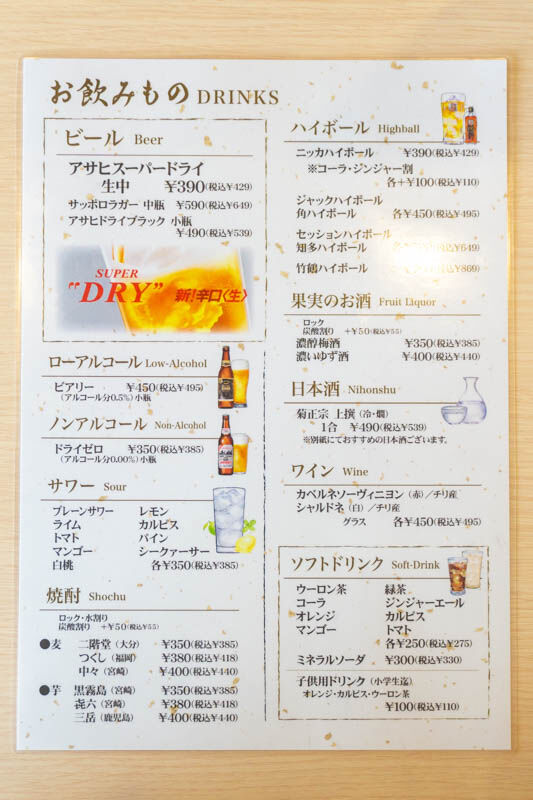 お飲みもの DRINKS
ビール Beer
アサヒスーパードライ
生中 ¥390(税込¥429)
サッポロラガー 中瓶 ¥590(税込¥649)
アサヒドライブラック 小瓶
¥490(税込¥539)
SUPER
"DRY" 新!辛口〈生〉
ローアルコール Low-Alcohol
ビアリー ¥450(税込¥495)
(アルコール分0.5%)小瓶
ノンアルコール Non-Alcohol
ドライゼロ ¥350(税込¥385)
(アルコール分0.00%)小瓶
サワー Sour
プレーンサワー レモン
ライム カルピス
トマト パイン
マンゴー シークァーサー
白桃 各¥350(税込¥385)
焼酎 Shochu
ロック・水割り
炭酸割り +¥50(税込¥55)
●麦 二階堂(大分) ¥350(税込¥385)
つくし(福岡) ¥380(税込¥418)
中々(宮崎) ¥400(税込¥440)
●芋 黒霧島(宮崎) ¥350(税込¥385)
㐂六(宮崎) ¥380(税込¥418)
三岳(鹿児島) ¥400(税込¥440)
ハイボール Highball
ニッカハイボール ¥390(税込¥429)
※コーラ・ジンジャー割
各+¥100(税込¥110)
ジャックハイボール
角ハイボール 各¥450(税込¥495)
セッションハイボール
知多ハイボール (税込¥649)
竹鶴ハイボール (税込¥869)
果実のお酒 Fruit Liquor
ロック
炭酸割り +¥50(税込¥55)
濃醇梅酒 ¥350(税込¥385)
濃いゆず酒 ¥400(税込¥440)
日本酒 Nihonshu
菊正宗 上撰(冷・燗)
1合 ¥490(税込¥539)
※別紙にておすすめの日本酒ございます。
ワイン Wine
カベルネソーヴィニヨン(赤)/チリ産
シャルドネ(白)/チリ産
グラス 各¥450(税込¥495)
ソフトドリンク Soft-Drink
ウーロン茶 緑茶
コーラ ジンジャーエール
オレンジ カルピス
マンゴー トマト
各¥250(税込¥275)
ミネラルソーダ ¥300(税込¥330)
子供用ドリンク(小学生迄)
オレンジ・カルピス・ウーロン茶
¥100(税込¥110)